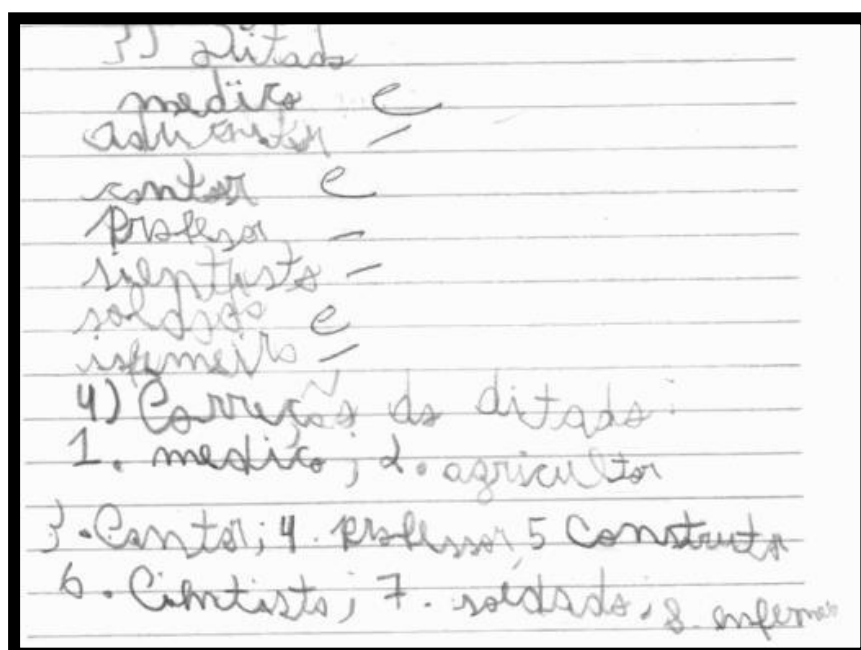 3) Ditado
medico e
cantor e
Profesor -
sientista -
soldado e
infemeiro -
4) Correção do ditado:
1. medico; 2. agricultor
3. Cantor; 4. Professor 5 Construto
6. Cientista; 7. soldado. 8. enferme